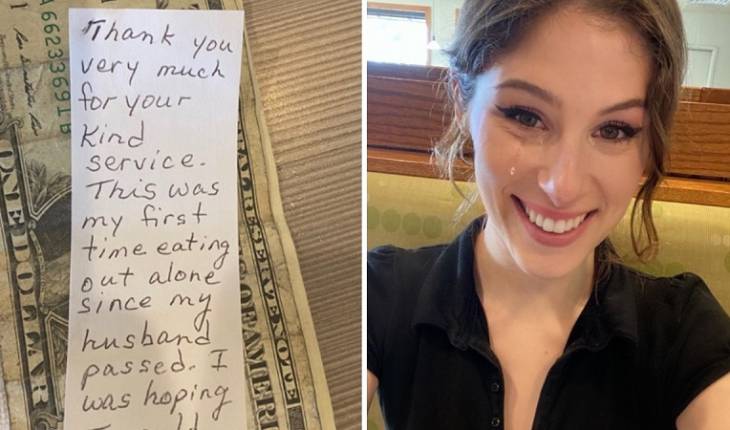 Thank you
very much
for your
kind
service.
This was
my first
time eating
out alone
since my
husband
passed. I
was hoping
A66233691B
ONE DOLLAR